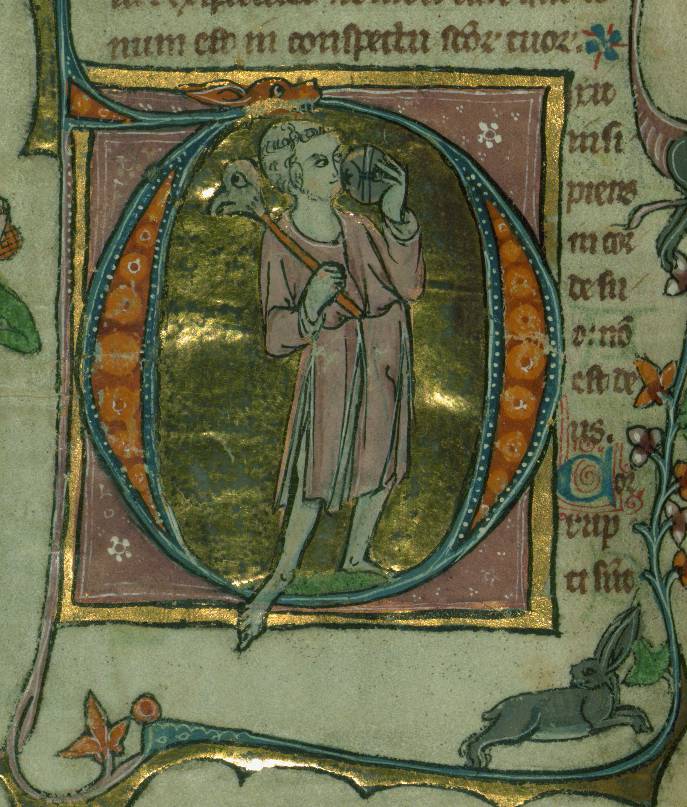 num est in conspectu scōꝝ tuoꝝ.
xit
insi
piens
in cor
de su
o: nō
est de
us.
Cor
rup
ti sūt